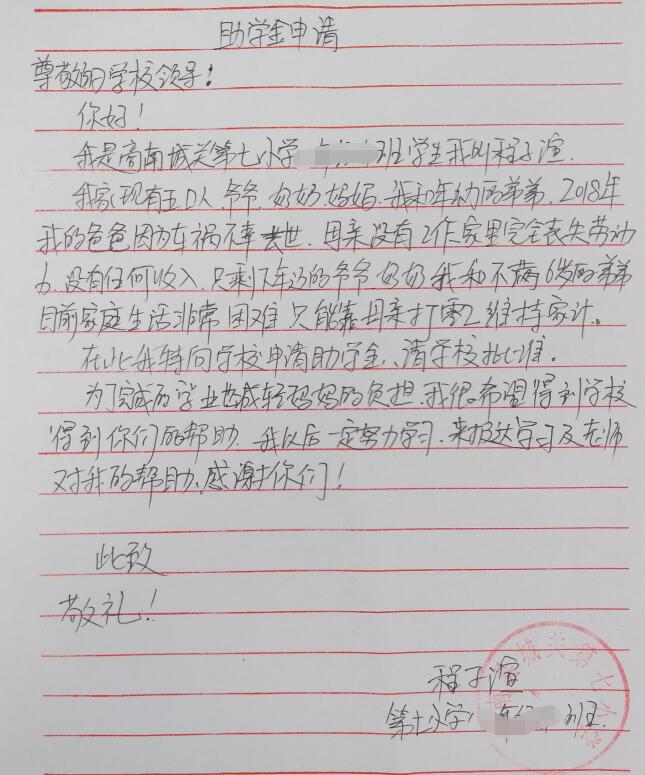 助学金申请
尊敬的学校领导：
你好！
我是商南城关第七小学 班学生我叫程子渲.
我家现有五口人,爷爷.奶奶.妈妈.我和年幼的弟弟.2018年
我的爸爸因为车祸不幸去世.母亲没有工作家里完全丧失劳动
力.没有任何收入.只剩下年迈的爷爷奶奶我和不满6岁的弟弟
目前家庭生活非常困难只能靠母亲打零工维持家计。
在此我特向学校申请助学金,请学校批准。
为了完成的学业也减轻妈妈的负担.我很希望得到学校
得到你们的帮助.我以后一定努力学习.来报达学习及老师
对我的帮助.感谢你们！
此致
敬礼！
程子渲
第七小学 班.
城关第七小学